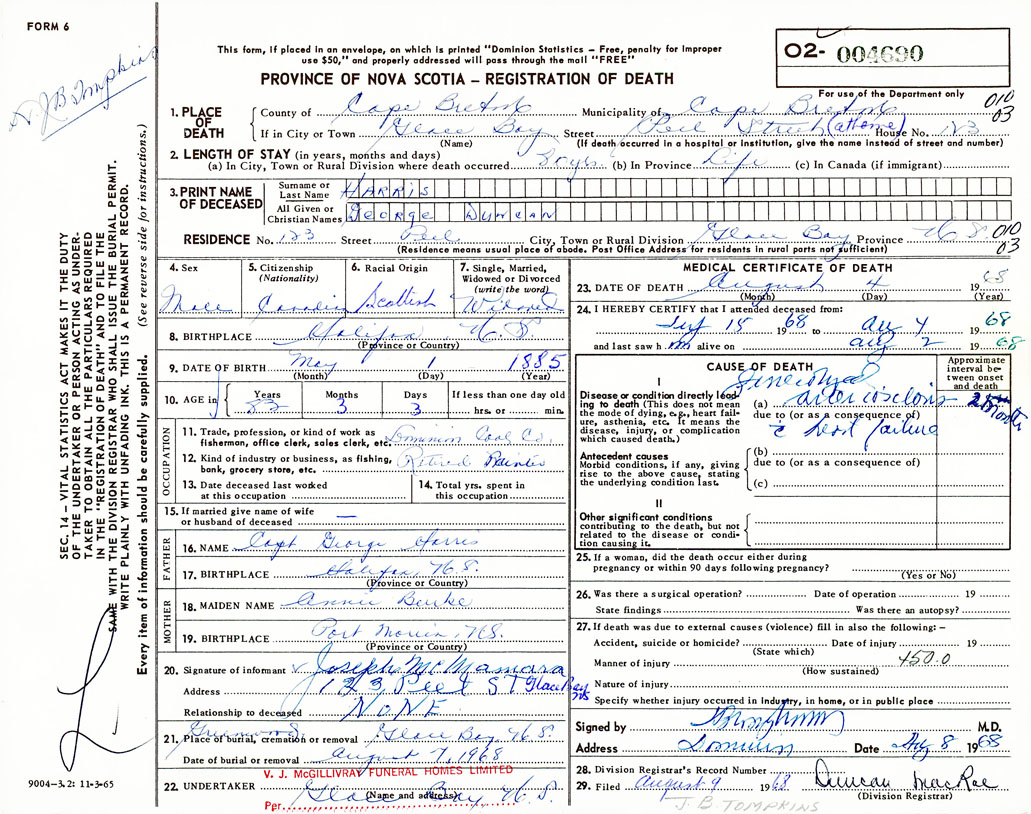 FORM 6
Dr. J B Tompkins
This form, if placed in an envelope, on which is printed "Dominion Statistics – Free, penalty for improper
use $50," and properly addressed will pass through the mail "FREE"
O2- 004690
PROVINCE OF NOVA SCOTIA – REGISTRATION OF DEATH
For use of the Department only
010
03
1. PLACE OF DEATH
County of Cape Breton Municipality of Cape Breton
If in City or Town Glace Bay Street Peel Street (at home) House No. 123
(Name) (If death occurred in a hospital or institution, give the name instead of street and number)
2. LENGTH OF STAY (in years, months and days)
(a) In City, Town or Rural Division where death occurred (b) In Province Life (c) In Canada (if immigrant)
3. PRINT NAME OF DECEASED
Surname or Last Name HARRIS
All Given or Christian Names GEORGE DUNCAN
RESIDENCE No. 123 Street Peel City, Town or Rural Division Glace Bay Province N. S. 010
03
(Residence means usual place of abode. Post Office Address for residents in rural parts not sufficient)
4. Sex
Male
5. Citizenship
(Nationality)
Canadian
6. Racial Origin
Scottish
7. Single, Married,
Widowed or Divorced
(write the word)
Widowed
8. BIRTHPLACE Halifax N. S.
(Province or Country)
9. DATE OF BIRTH May 1 1885
(Month) (Day) (Year)
10. AGE in
Years Months Days If less than one day old
83 3 3 hrs. or min.
OCCUPATION
11. Trade, profession, or kind of work as
fisherman, office clerk, sales clerk, etc. Dominion Coal Co.
12. Kind of industry or business, as fishing,
bank, grocery store, etc. Retired Painter
13. Date deceased last worked
at this occupation
14. Total yrs. spent in
this occupation
15. If married give name of wife
or husband of deceased —
FATHER
16. NAME Capt George Harris
17. BIRTHPLACE Halifax, N. S.
(Province or Country)
MOTHER
18. MAIDEN NAME Annie Burke
19. BIRTHPLACE Port Morien, N.S.
(Province or Country)
20. Signature of informant Joseph McNamara
Address 123 Peel ST Glace Bay NS
Relationship to deceased NONE
21. Place of burial, cremation or removal Greenwood Glace Bay N. S.
Date of burial or removal August 7, 1968
V. J. McGILLIVRAY FUNERAL HOMES LIMITED
22. UNDERTAKER Glace Bay N. S.
(Name and address)
Per
MEDICAL CERTIFICATE OF DEATH
23. DATE OF DEATH August 4 1968
(Month) (Day) (Year)
24. I HEREBY CERTIFY that I attended deceased from:
15 1968 to Au 4 1968
and last saw h m alive on Aug 2 1968
CAUSE OF DEATH
Approximate interval between onset and death
I
Disease or condition directly leading to death (This does not mean the mode of dying, e.g., heart failure, asthenia, etc. It means the disease, injury, or complication which caused death.)
Generalized
(a) arteriosclerosis
2 Months
due to (or as a consequence of)
c̄ heart failure
Antecedent causes
Morbid conditions, if any, giving rise to the above cause, stating the underlying condition last.
(b)
due to (or as a consequence of)
(c)
II
Other significant conditions
contributing to the death, but not related to the disease or condition causing it.
25. If a woman, did the death occur either during
pregnancy or within 90 days following pregnancy?
(Yes or No)
26. Was there a surgical operation? Date of operation 19
State findings Was there an autopsy?
27. If death was due to external causes (violence) fill in also the following: –
Accident, suicide or homicide? Date of injury 19
(State which)
Manner of injury 450.0
(How sustained)
Nature of injury
Specify whether injury occurred in industry, in home, or in public place
Signed by M.D.
Address Dominion Date Aug 8 1968
28. Division Registrar's Record Number
29. Filed August 9 1968 Duncan MacRae
(Division Registrar)
J. B. TOMPKINS
SEC. 14 – VITAL STATISTICS ACT MAKES IT THE DUTY
OF THE UNDERTAKER OR PERSON ACTING AS UNDER-
TAKER TO OBTAIN ALL THE PARTICULARS REQUIRED
IN THE "REGISTRATION OF DEATH" AND TO FILE THE
SAME WITH THE DIVISION REGISTRAR WHO SHALL ISSUE THE BURIAL PERMIT.
WRITE PLAINLY WITH UNFADING INK. THIS IS A PERMANENT RECORD.
Every item of information should be carefully supplied. (See reverse side for instructions.)
9004-3.2: 11-3-65